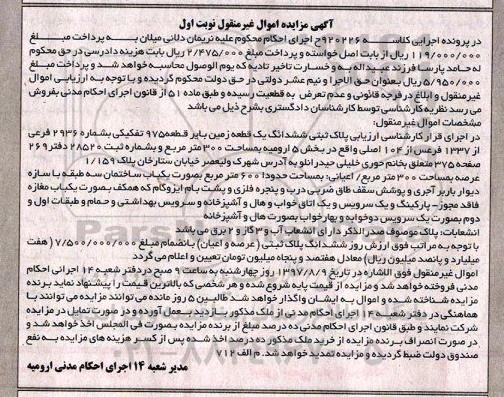 آگهی مزایده اموال غیرمنقول نوبت اول
در پرونده اجرایی کلاسه ۹۲۰۲۲۶ج اجرای احکام محکوم علیه نریمان دلانی میلان به پرداخت مبلغ
۱۱۹/۰۰۰/۰۰۰ ریال از بابت اصل خواسته و پرداخت مبلغ ۲/۴۷۵/۰۰۰ ریال بابت هزینه دادرسی در حق محکوم
له حامد پارسا فرزند عبداله به و خسارت تاخیر تادیه که یوم الوصول محاسبه خواهد شد و پرداخت مبلغ
۵/۹۵۰/۰۰۰ ریال بعنوان حق الاجرا و نیم عشر دولتی در حق دولت محکوم گردیده و با توجه به ارزیابی اموال
غیرمنقول و ابلاغ در فرجه قانونی و عدم تعرض به قطعیت رسیده و طبق ماده ۵۱ از قانون اجرای احکام مدنی بفروش
می رسد نظریه کارشناسی توسط کارشناسان دادگستری بشرح ذیل می باشد
مشخصات اموال غیرمنقول:
در اجرای قرار کارشناسی ارزیابی پلاک ثبتی ششدانگ یک قطعه زمین بایر قطعه ۹۷۵ تفکیکی بشماره ۲۹۳۶ فرعی
از ۱۳۳۷ فرعی از ۱۰۴ اصلی واقع در بخش ۵ ارومیه بمساحت ۳۰۰ متر مربع و بشماره ثبت ۲۸۵۲۰ دفتر ۲۶۹
صفحه ۳۷۵ متعلق بخانم حوری خلیلی حیدرانلو به آدرس شهرک ولیعصر خیابان ستارخان پلاک ۱/۱۵۹
عرصه بمساحت ۳۰۰ متر مربع/ اعیانی: بمساحت حدودا ۶۰۰ متر مربع بصورت یکباب ساختمان سه طبقه با سازه
دیوار باربر آجری و پوشش سقف طاق ضربی درب و پنجره فلزی و پشت بام ایزوگام که همکف بصورت یکباب مغازه
فاقد مجوز- پارکینگ و یک سرویس و یک اتاق خواب و هال و آشپزخانه و سرویس بهداشتی و حمام و طبقات اول و
دوم بصورت یک سرویس دوخوابه و چهارخواب بصورت هال و آشپزخانه
انشعابات: پلاک موصوف صدرالذکر دارای انشعاب آب و ۳ گاز و ۲ برق می باشد
با توجه به مراتب فوق ارزش روز ششدانگ پلاک ثبتی (عرصه و اعیان) بانضمام مبلغ ۷/۵۰۰/۰۰۰/۰۰۰ (هفت
میلیارد و پانصد میلیون ریال) معادل هفتصد و پنجاه میلیون تومان تعیین و اعلام می گردد
اموال غیرمنقول فوق الاشاره در تاریخ ۱۳۹۷/۸/۹ روز چهارشنبه به ساعت ۹ صبح در دفتر شعبه ۱۴ اجرای احکام
مدنی فروخته خواهد شد و مزایده از قیمت پایه شروع شده و هر شخصی که بالاترین قیمت را پیشنهاد نماید برنده
مزایده شناخته شده و اموال به ایشان واگذار خواهد شد طالبین ۵ روز مانده می توانند مزایده می توانند با
هماهنگی در دفتر شعبه ۱۴ اجرای احکام مدنی از ملک مذکور بازدید بعمل آورده و در صورت تمایل در مزایده
شرکت نمایند و طبق قانون اجرای احکام مدنی ده درصد مبلغ از برنده مزایده بصورت فی المجلس اخذ خواهد شد و
در صورت انصراف برنده مزایده از خرید ملک مذکور ده درصد اخذ شده پس از کسر هزینه های مزایده به نفع
صندوق دولت ضبط گردیده و مزایده تمدید خواهد شد. م الف ۷۱۲
مدیر شعبه ۱۴ اجرای احکام مدنی ارومیه